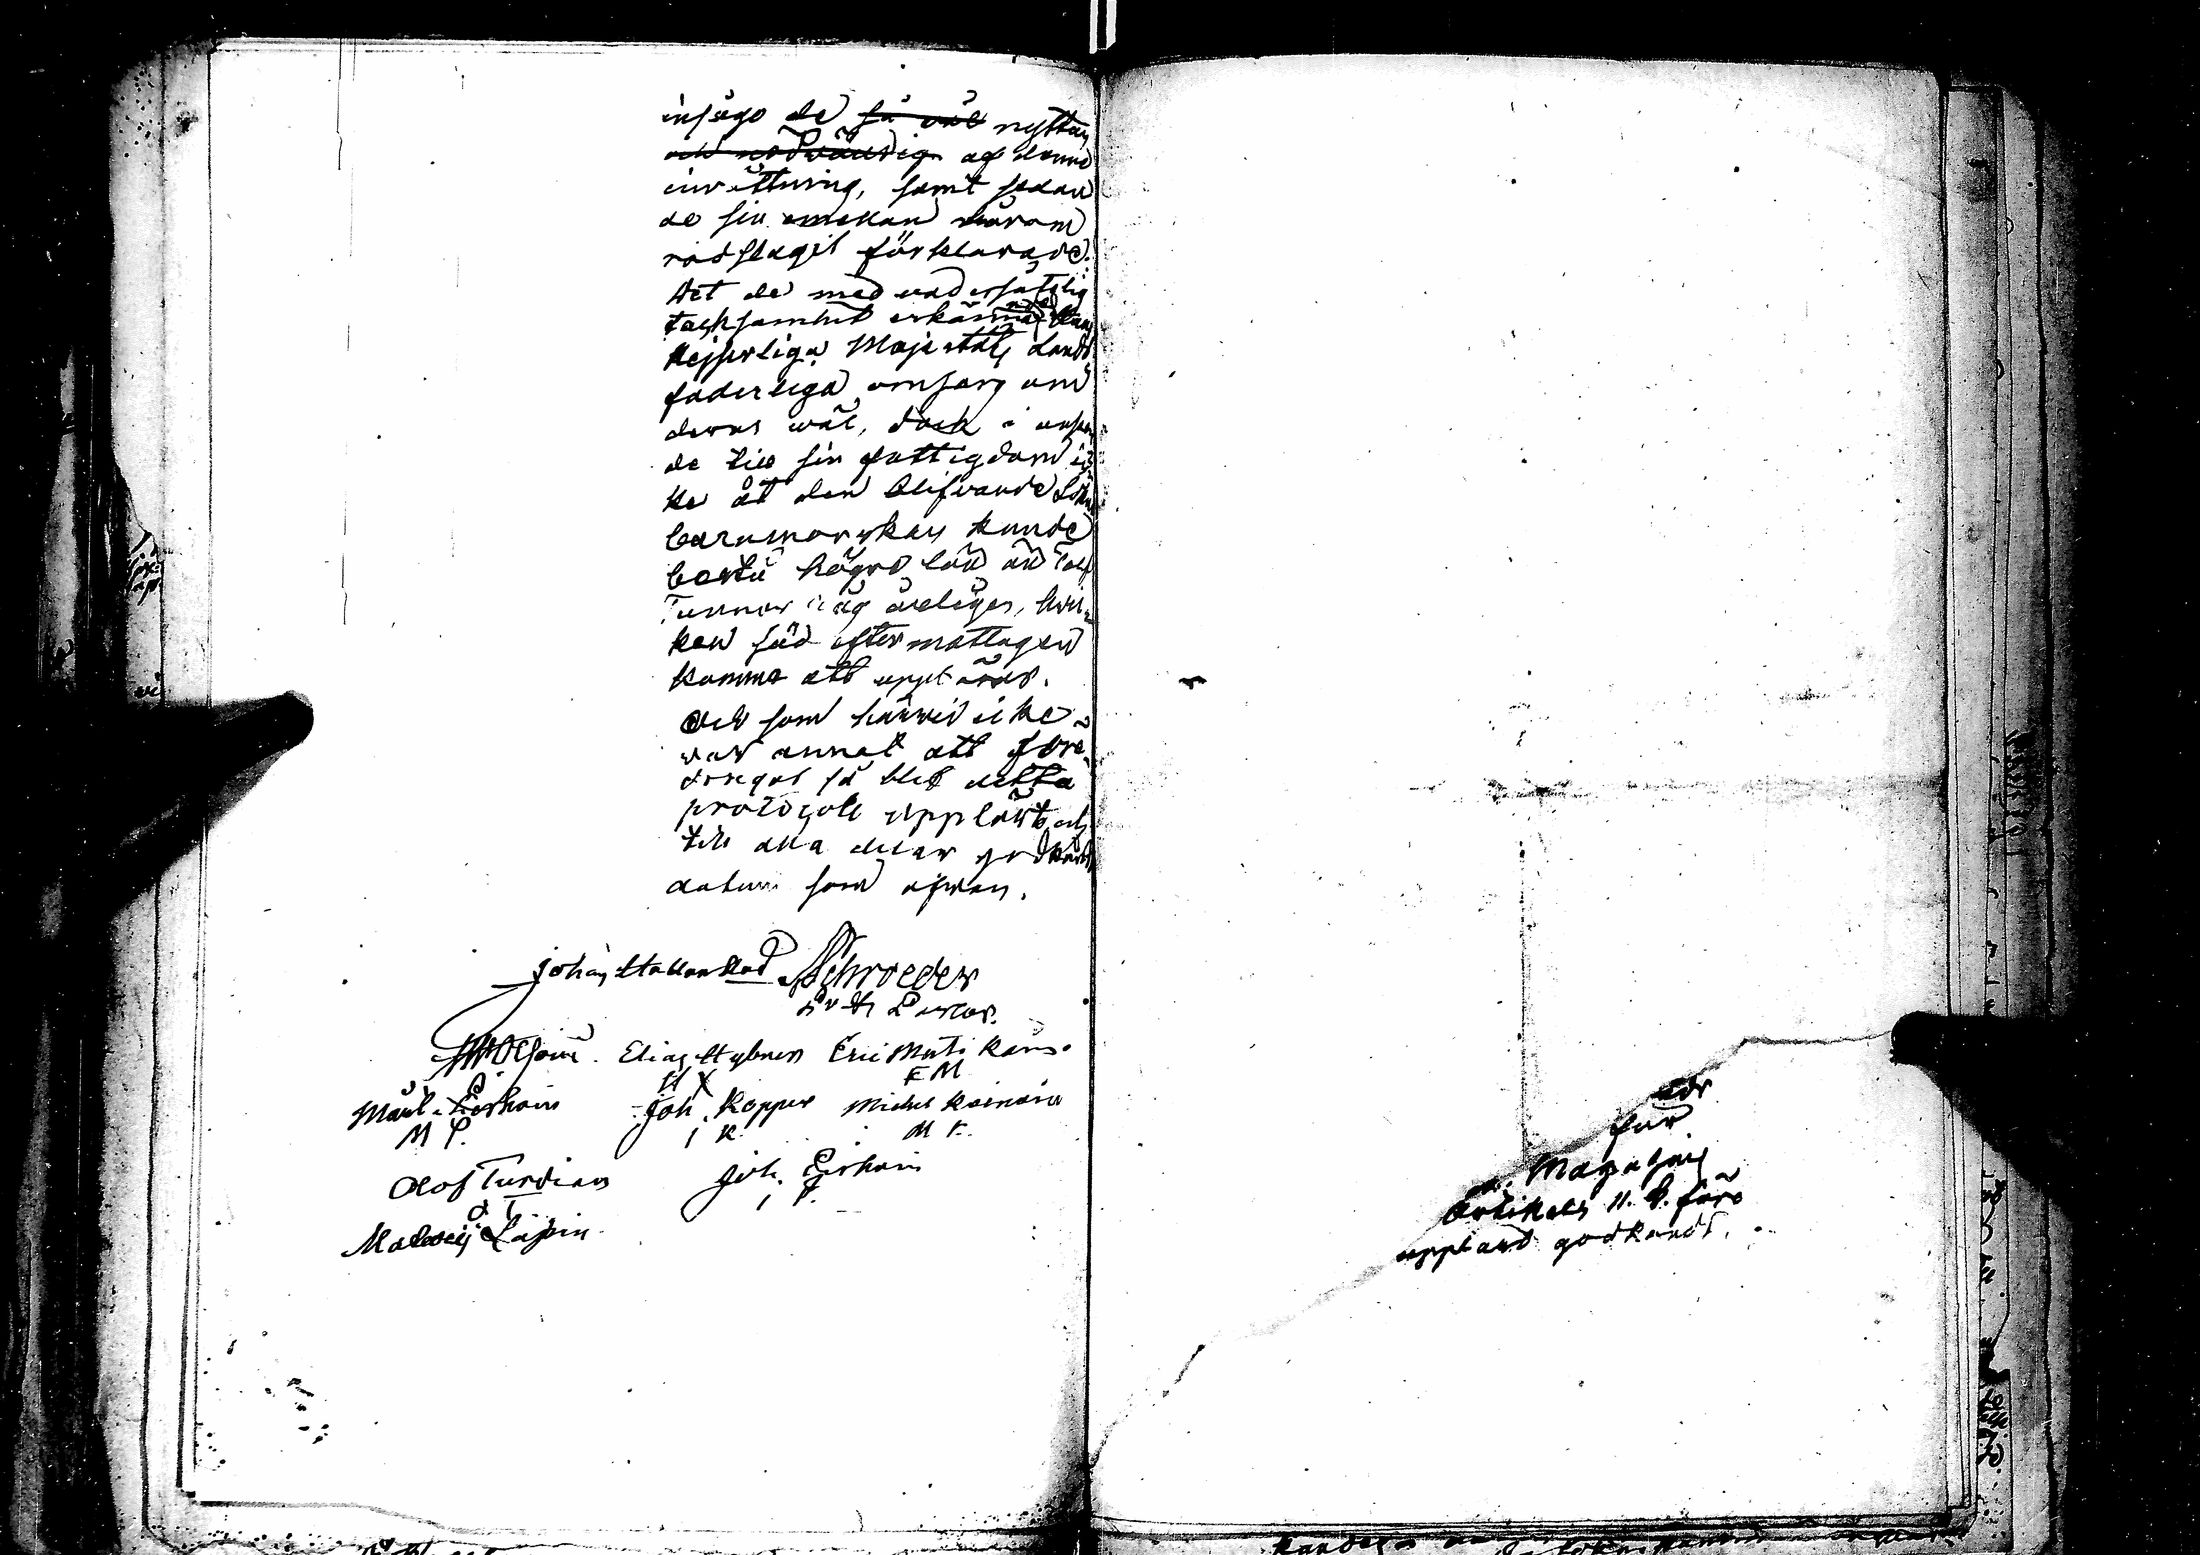 insågo de så wäl nyttan
och nödwändig af denna
inrättning, samt sedan
de sin emellan härom
rådslagit förklarade:
Att de med undersåtelig
tacksamhet erkänna Hans
Kejserliga Majestäts Lands
faderliga omsorg om
deras wäl, dock i anseen
de till sin fattigdom ic
ke åt den blifvande
barnmorskan kunde
bestå högre lön än Tolf
Tunnor Råg årligen, hwil-
ken säd efter mattagen
komme att uppbäras.
Och som härwid icke
war annat att före-
draga så blef detta
protocoll uppläst och
till alla delar godkändt
datum som ofwan.
Johan Schroeder
Elias Hybner Eric Matikain.
H X E M
Mårt. Pirhoin Joh. Kopper Michel Koinoin
M P. I K M K.
Olof Turdian Joh. Pirhoin
O T I P.
Matwej Lapin
för
Magazins
Artikeln 11. b. före
uppläst godkändt.